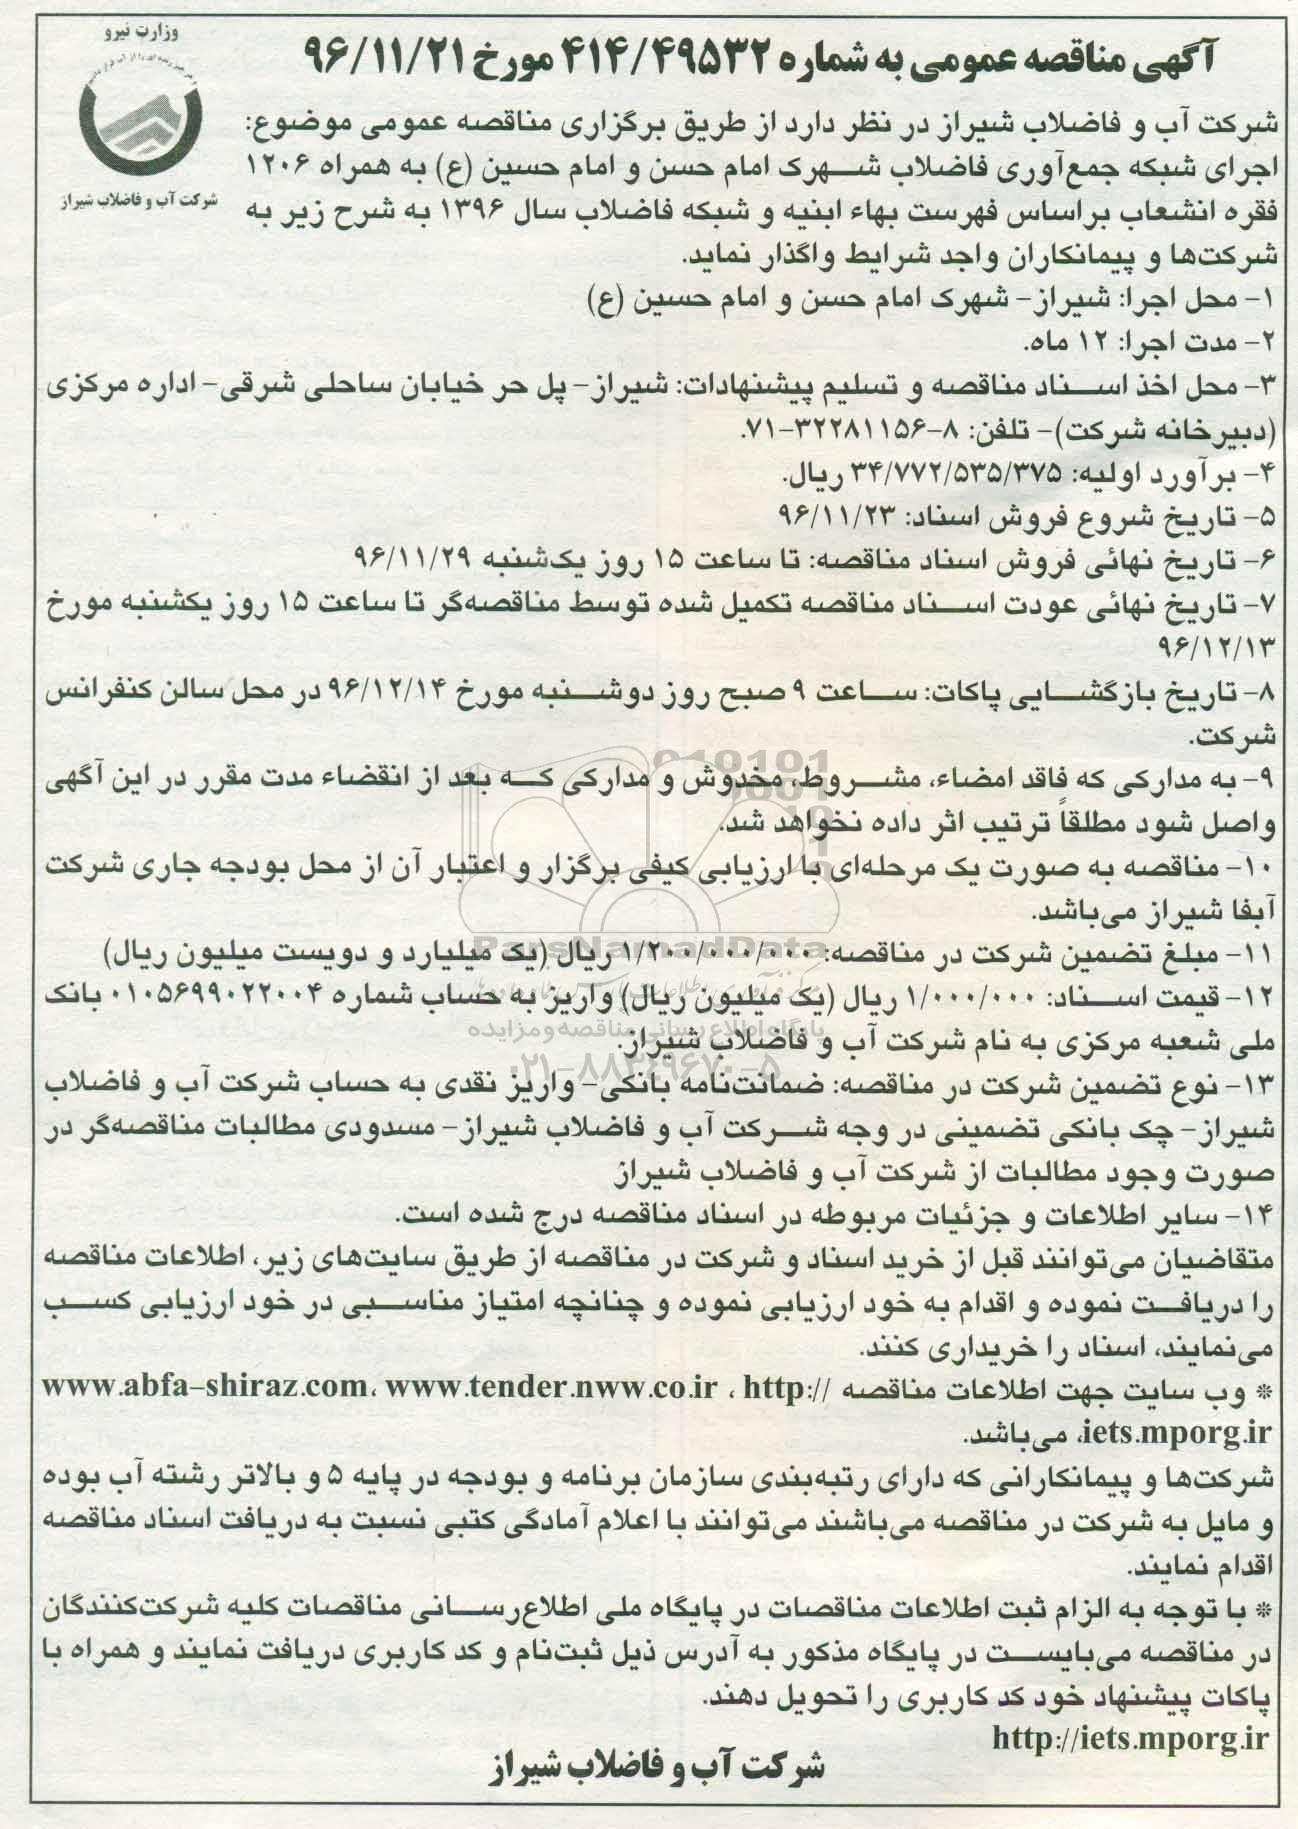 وزارت نیرو
شرکت آب و فاضلاب شیراز
آگهی مناقصه عمومی به شماره ۴۱۴/۴۹۵۳۲ مورخ ۹۶/۱۱/۲۱
شرکت آب و فاضلاب شیراز در نظر دارد از طریق برگزاری مناقصه عمومی موضوع:
اجرای شبکه جمع‌آوری فاضلاب شهرک امام حسن و امام حسین (ع) به همراه ۱۲۰۶
فقره انشعاب براساس فهرست بهاء ابنیه و شبکه فاضلاب سال ۱۳۹۶ به شرح زیر به
شرکت‌ها و پیمانکاران واجد شرایط واگذار نماید.
۱- محل اجرا: شیراز- شهرک امام حسن و امام حسین (ع)
۲- مدت اجرا: ۱۲ ماه.
۳- محل اخذ اسناد مناقصه و تسلیم پیشنهادات: شیراز- پل حر خیابان ساحلی شرقی- اداره مرکزی
(دبیرخانه شرکت)- تلفن: ۸-۳۲۲۸۱۱۵۶-۷۱.
۴- برآورد اولیه: ۳۴/۷۷۲/۵۳۵/۳۷۵ ریال.
۵- تاریخ شروع فروش اسناد: ۹۶/۱۱/۲۳
۶- تاریخ نهائی فروش اسناد مناقصه: تا ساعت ۱۵ روز یک‌شنبه ۹۶/۱۱/۲۹
۷- تاریخ نهائی عودت اسناد مناقصه تکمیل شده توسط مناقصه‌گر تا ساعت ۱۵ روز یکشنبه مورخ
۹۶/۱۲/۱۳
۸- تاریخ بازگشایی پاکات: ساعت ۹ صبح روز دوشنبه مورخ ۹۶/۱۲/۱۴ در محل سالن کنفرانس
شرکت.
۹- به مدارکی که فاقد امضاء، مشروط، مخدوش و مدارکی که بعد از انقضاء مدت مقرر در این آگهی
واصل شود مطلقاً ترتیب اثر داده نخواهد شد.
۱۰- مناقصه به صورت یک مرحله‌ای با ارزیابی کیفی برگزار و اعتبار آن از محل بودجه جاری شرکت
آبفا شیراز می‌باشد.
ParsNamadData
۱۱- مبلغ تضمین شرکت در مناقصه: ۱/۲۰۰/۰۰۰/۰۰۰ ریال (یک میلیارد و دویست میلیون ریال)
۱۲- قیمت اسناد: ۱/۰۰۰/۰۰۰ ریال (یک میلیون ریال) واریز به حساب شماره ۰۱۰۵۶۹۹۰۲۲۰۰۴ بانک
پایگاه اطلاع رسانی مناقصه و مزایده
ملی شعبه مرکزی به نام شرکت آب و فاضلاب شیراز.
۰۲۱-۸۸۳۴۹۶۷۰-۵
۱۳- نوع تضمین شرکت در مناقصه: ضمانت‌نامه بانکی- واریز نقدی به حساب شرکت آب و فاضلاب
شیراز- چک بانکی تضمینی در وجه شرکت آب و فاضلاب شیراز- مسدودی مطالبات مناقصه‌گر در
صورت وجود مطالبات از شرکت آب و فاضلاب شیراز
۱۴- سایر اطلاعات و جزئیات مربوطه در اسناد مناقصه درج شده است.
متقاضیان می‌توانند قبل از خرید اسناد و شرکت در مناقصه از طریق سایت‌های زیر، اطلاعات مناقصه
را دریافت نموده و اقدام به خود ارزیابی نموده و چنانچه امتیاز مناسبی در خود ارزیابی کسب
می‌نمایند، اسناد را خریداری کنند.
* وب سایت جهت اطلاعات مناقصه http:// ، www.tender.nww.co.ir ،www.abfa-shiraz.com
iets.mporg.ir، می‌باشد.
شرکت‌ها و پیمانکارانی که دارای رتبه‌بندی سازمان برنامه و بودجه در پایه ۵ و بالاتر رشته آب بوده
و مایل به شرکت در مناقصه می‌باشند می‌توانند با اعلام آمادگی کتبی نسبت به دریافت اسناد مناقصه
اقدام نمایند.
* با توجه به الزام ثبت اطلاعات مناقصات در پایگاه ملی اطلاع‌رسانی مناقصات کلیه شرکت‌کنندگان
در مناقصه می‌بایست در پایگاه مذکور به آدرس ذیل ثبت‌نام و کد کاربری دریافت نمایند و همراه با
پاکات پیشنهاد خود کد کاربری را تحویل دهند.
http://iets.mporg.ir
شرکت آب و فاضلاب شیراز